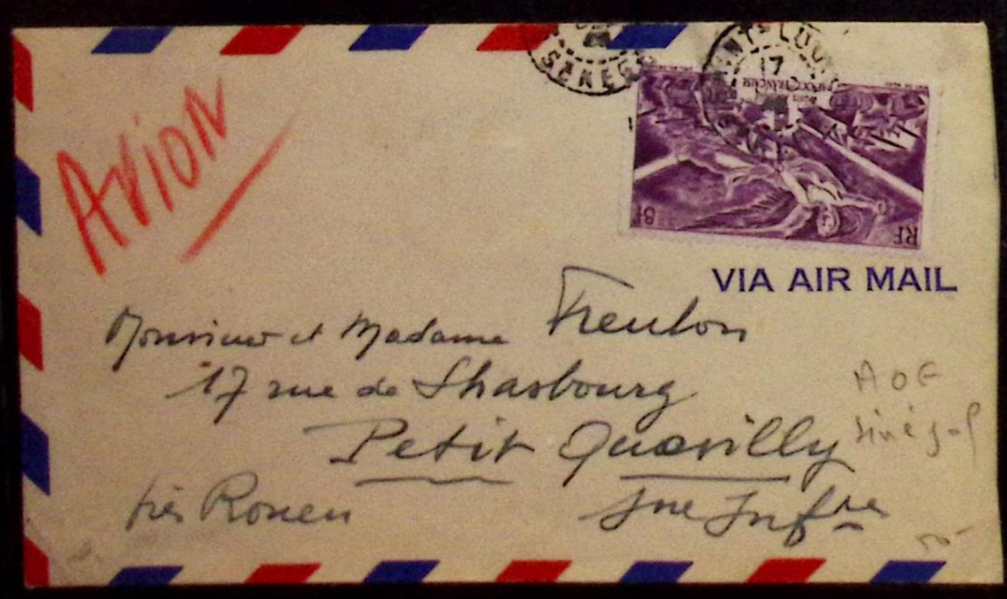 Avion
SÉNÉGAL
SAINT-LOUIS
17
RF
8F
VIA AIR MAIL
Monsieur et Madame
17 rue de Strasbourg
Petit Quevilly
près Rouen
Sne Infre
AOF
Sénégal